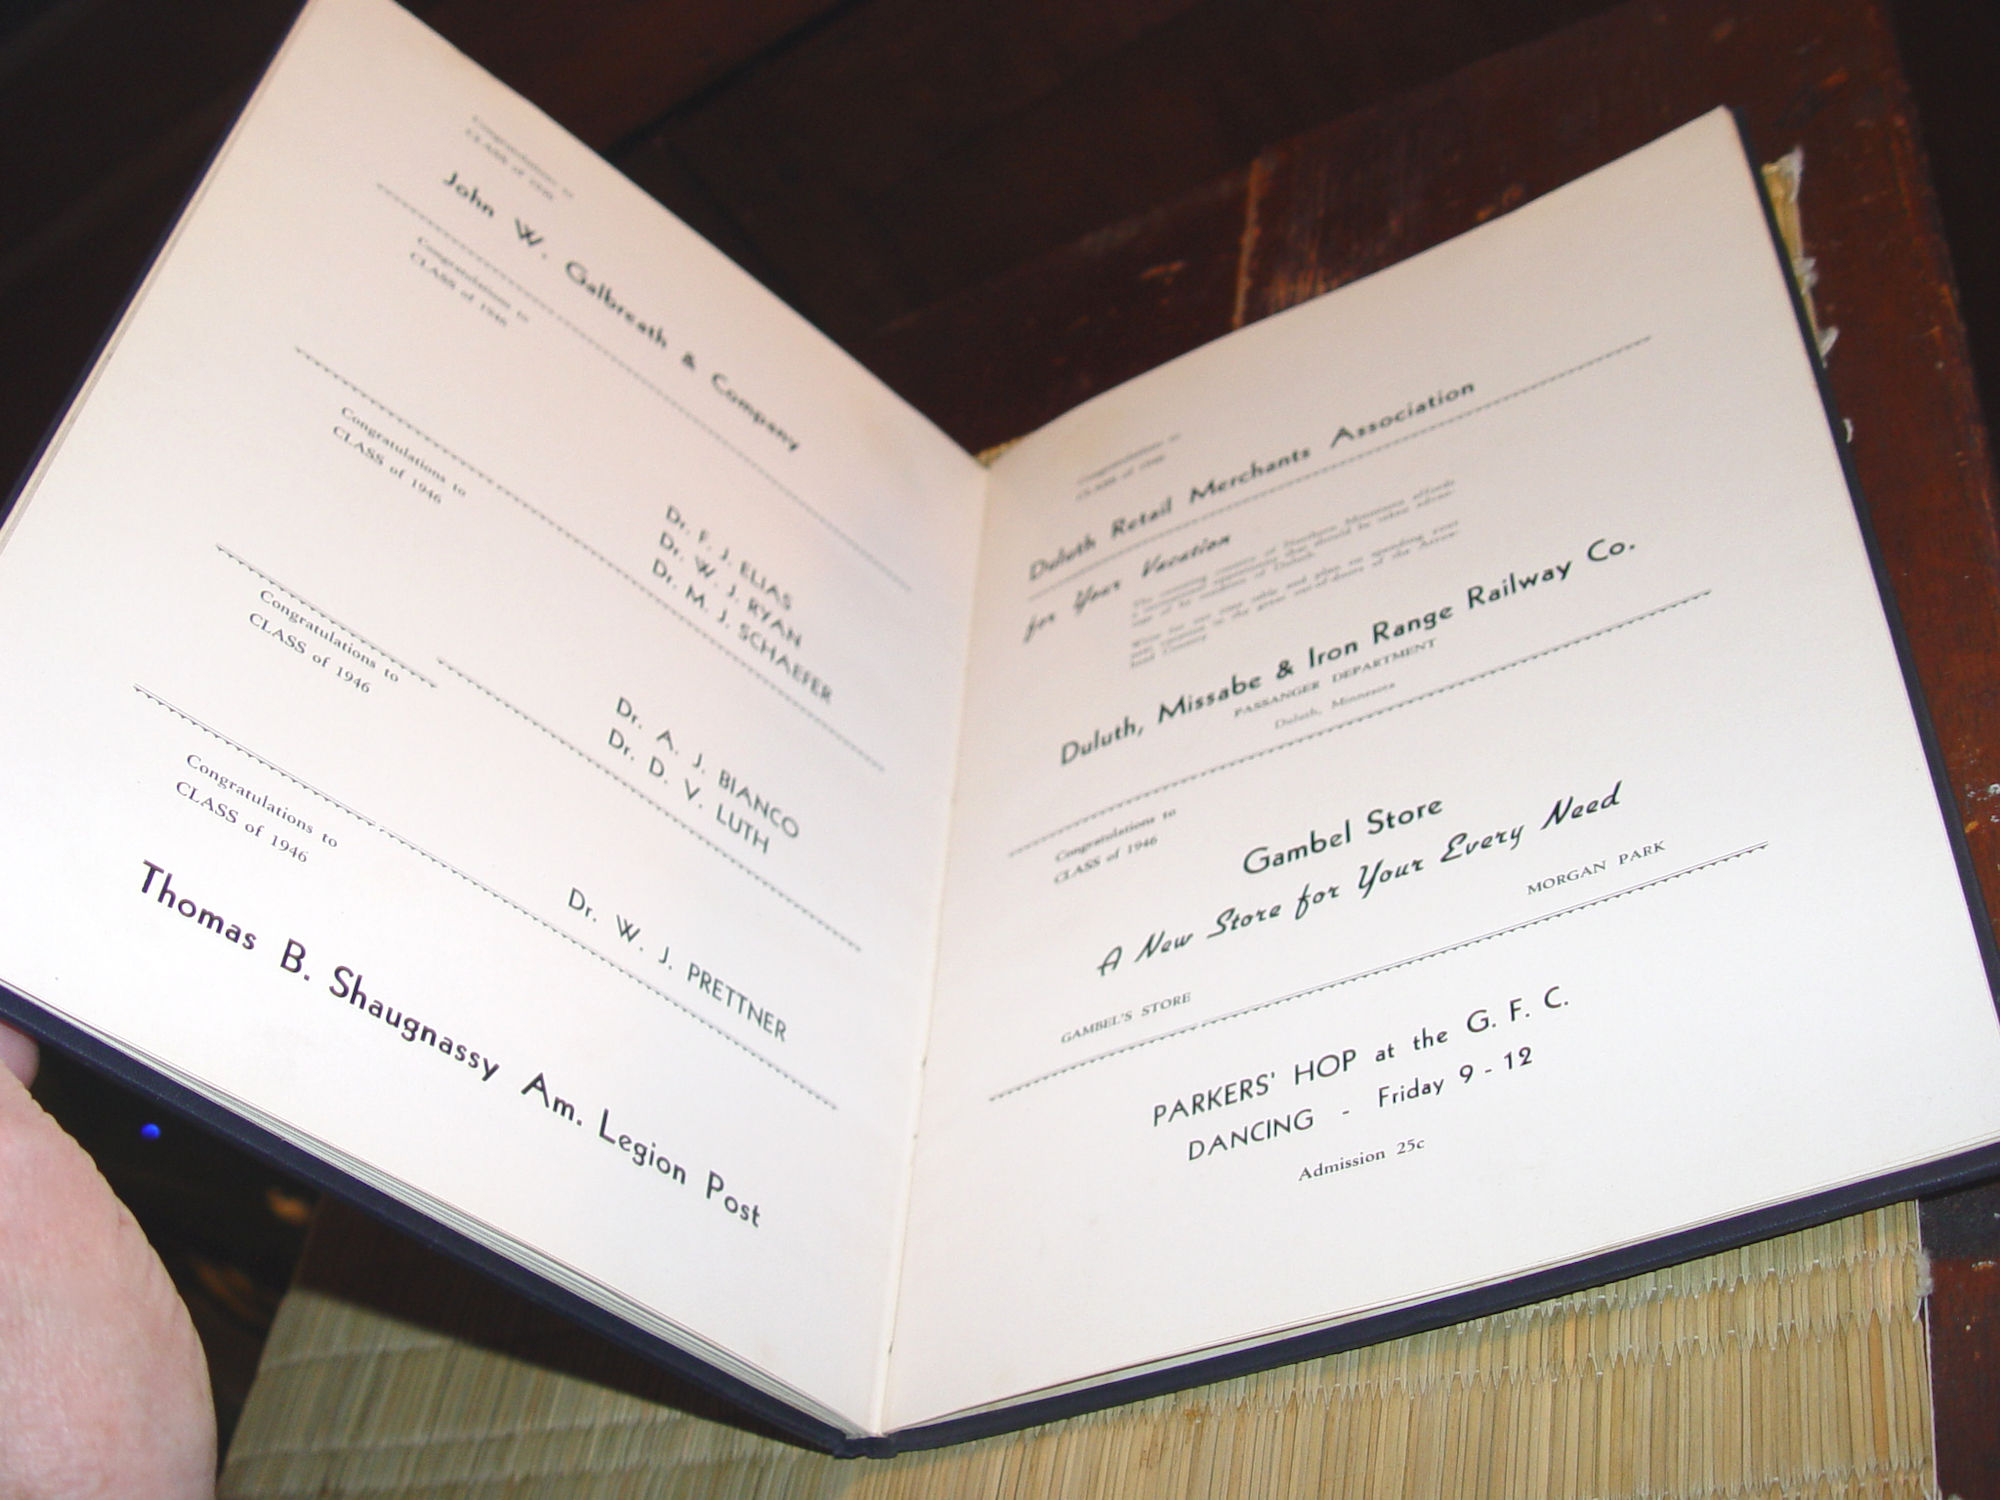 Congratulations to
CLASS of 1946
John W. Galbreath & Company
Congratulations to
CLASS of 1946
Dr. F. J. ELIAS
Dr. W. J. RYAN
Dr. M. J. SCHAEFER
Congratulations to
CLASS of 1946
Dr. A. J. BIANCO
Dr. D. V. LUTH
Congratulations to
CLASS of 1946
Dr. W. J. PRETTNER
Congratulations to
CLASS of 1946
Thomas B. Shaugnassy Am. Legion Post
Congratulations to
CLASS of 1946
Duluth Retail Merchants Association
for Your Vacation
Duluth, Missabe & Iron Range Railway Co.
PASSANGER DEPARTMENT
Duluth, Minnesota
Congratulations to
CLASS of 1946
Gambel Store
A New Store for Your Every Need
GAMBEL'S STORE MORGAN PARK
PARKERS' HOP at the G. F. C.
DANCING - Friday 9 - 12
Admission 25c